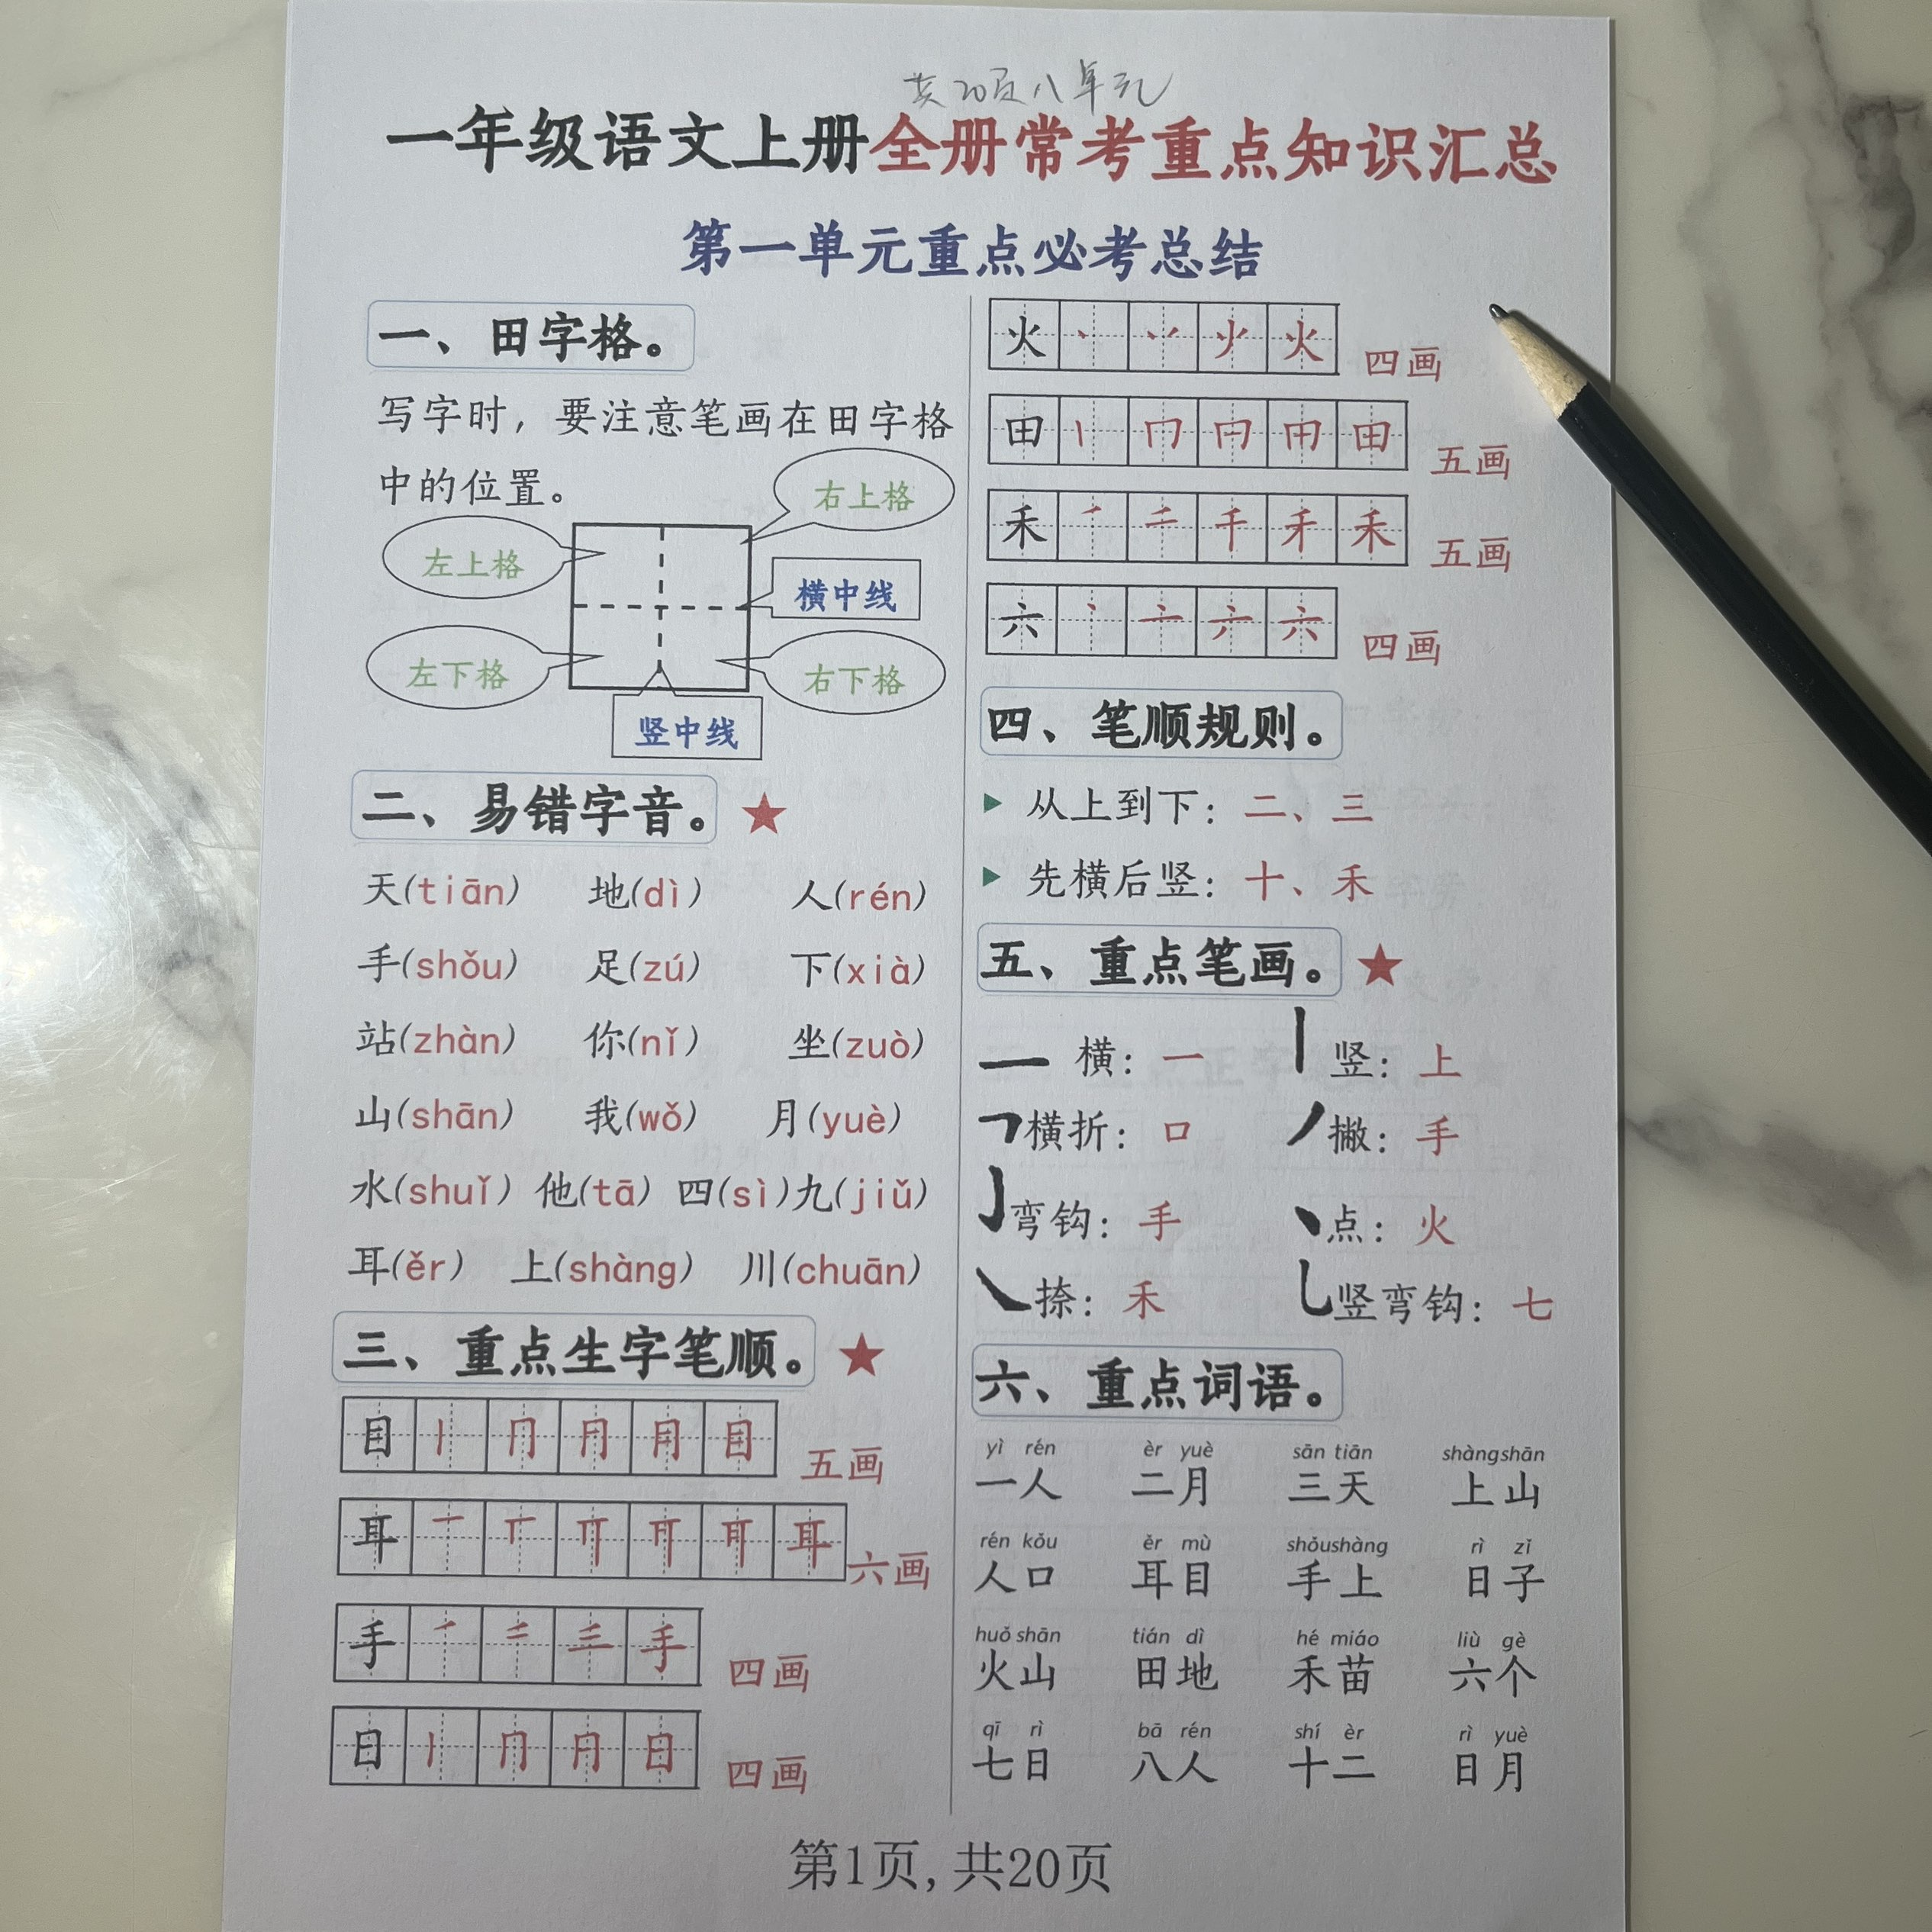 共20页八单元
一年级语文上册全册常考重点知识汇总
第一单元重点必考总结
一、田字格。
写字时，要注意笔画在田字格
中的位置。
右上格
左上格
横中线
左下格
右下格
竖中线
二、易错字音。★
天(tiān) 地(dì) 人(rén)
手(shǒu) 足(zú) 下(xià)
站(zhàn) 你(nǐ) 坐(zuò)
山(shān) 我(wǒ) 月(yuè)
水(shuǐ) 他(tā) 四(sì)九(jiǔ)
耳(ěr) 上(shàng) 川(chuān)
三、重点生字笔顺。★
目 目 五画
耳 耳 六画
手 手 四画
日 日 四画
火 火 四画
田 田 五画
禾 禾 五画
六 六 四画
四、笔顺规则。
从上到下：二、三
先横后竖：十、禾
五、重点笔画。★
一 横：一 丨 竖：上
㇕横折：口 丿撇：手
㇁弯钩：手 丶点：火
㇏捺：禾 乚竖弯钩：七
六、重点词语。
yì rén èr yuè sān tiān shàngshān
一人 二月 三天 上山
rén kǒu ěr mù shǒushàng rì zǐ
人口 耳目 手上 日子
huǒ shān tián dì hé miáo liù gè
火山 田地 禾苗 六个
qī rì bā rén shí èr rì yuè
七日 八人 十二 日月
第1页,共20页